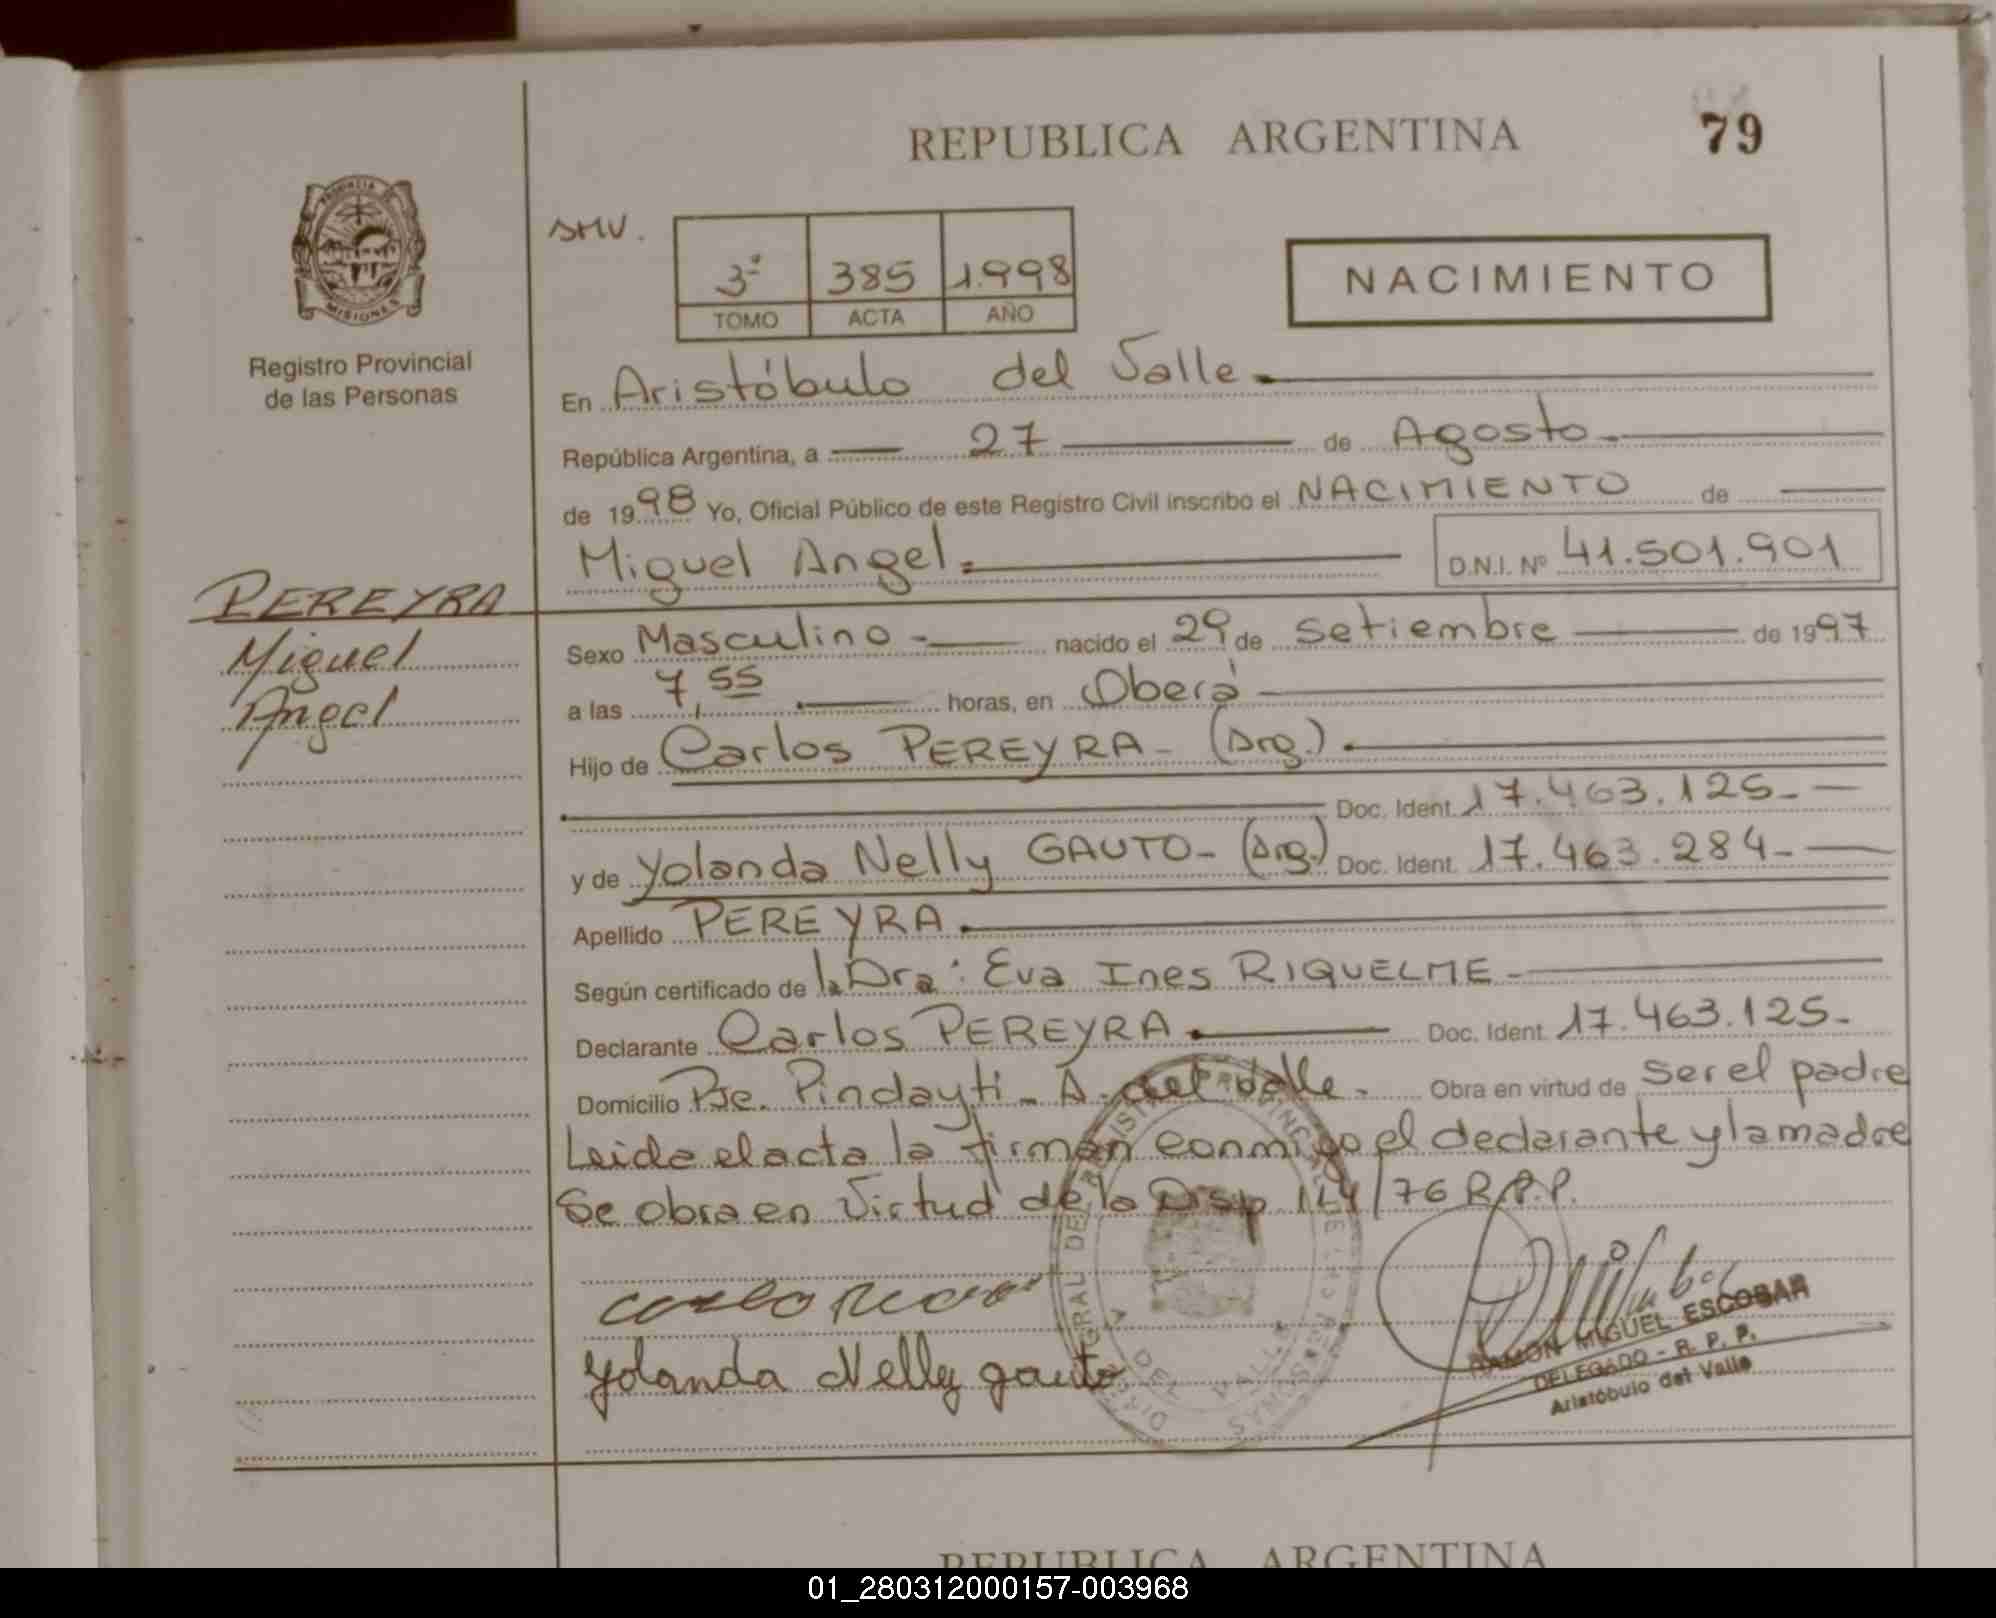 REPUBLICA ARGENTINA
79
PROVINCIA DE
MISIONES
Registro Provincial
de las Personas
3º 385 1.998
TOMO ACTA AÑO
NACIMIENTO
En Aristóbulo del Valle
República Argentina, a 27 de Agosto
de 1998 Yo, Oficial Público de este Registro Civil inscribo el NACIMIENTO de
Miguel Angel D.N.I. Nº 41.501.901
PEREYRA
Miguel
Angel
Sexo Masculino nacido el 29 de Setiembre de 1997
a las 7,55 horas, en Oberá
Hijo de Carlos PEREYRA - (Arg.)
Doc. Ident. 17.463.125
y de Yolanda Nelly GAUTO - (Arg.) Doc. Ident. 17.463.284
Apellido PEREYRA
Según certificado de la Dra: Eva Ines RIQUELME
Declarante Carlos PEREYRA Doc. Ident. 17.463.125
Domicilio Pje. Pindayti - A. del Valle Obra en virtud de ser el padre
Leida el acta la firman conmigo el declarante y la madre
Se obra en Virtud de la Disp 144/76 R.P.P.
Yolanda Nelly gauto
RAMON MIGUEL ESCOBAR
DELEGADO - R. P. P.
Aristóbulo del Valle
REPUBLICA ARGENTINA
01_280312000157-003968